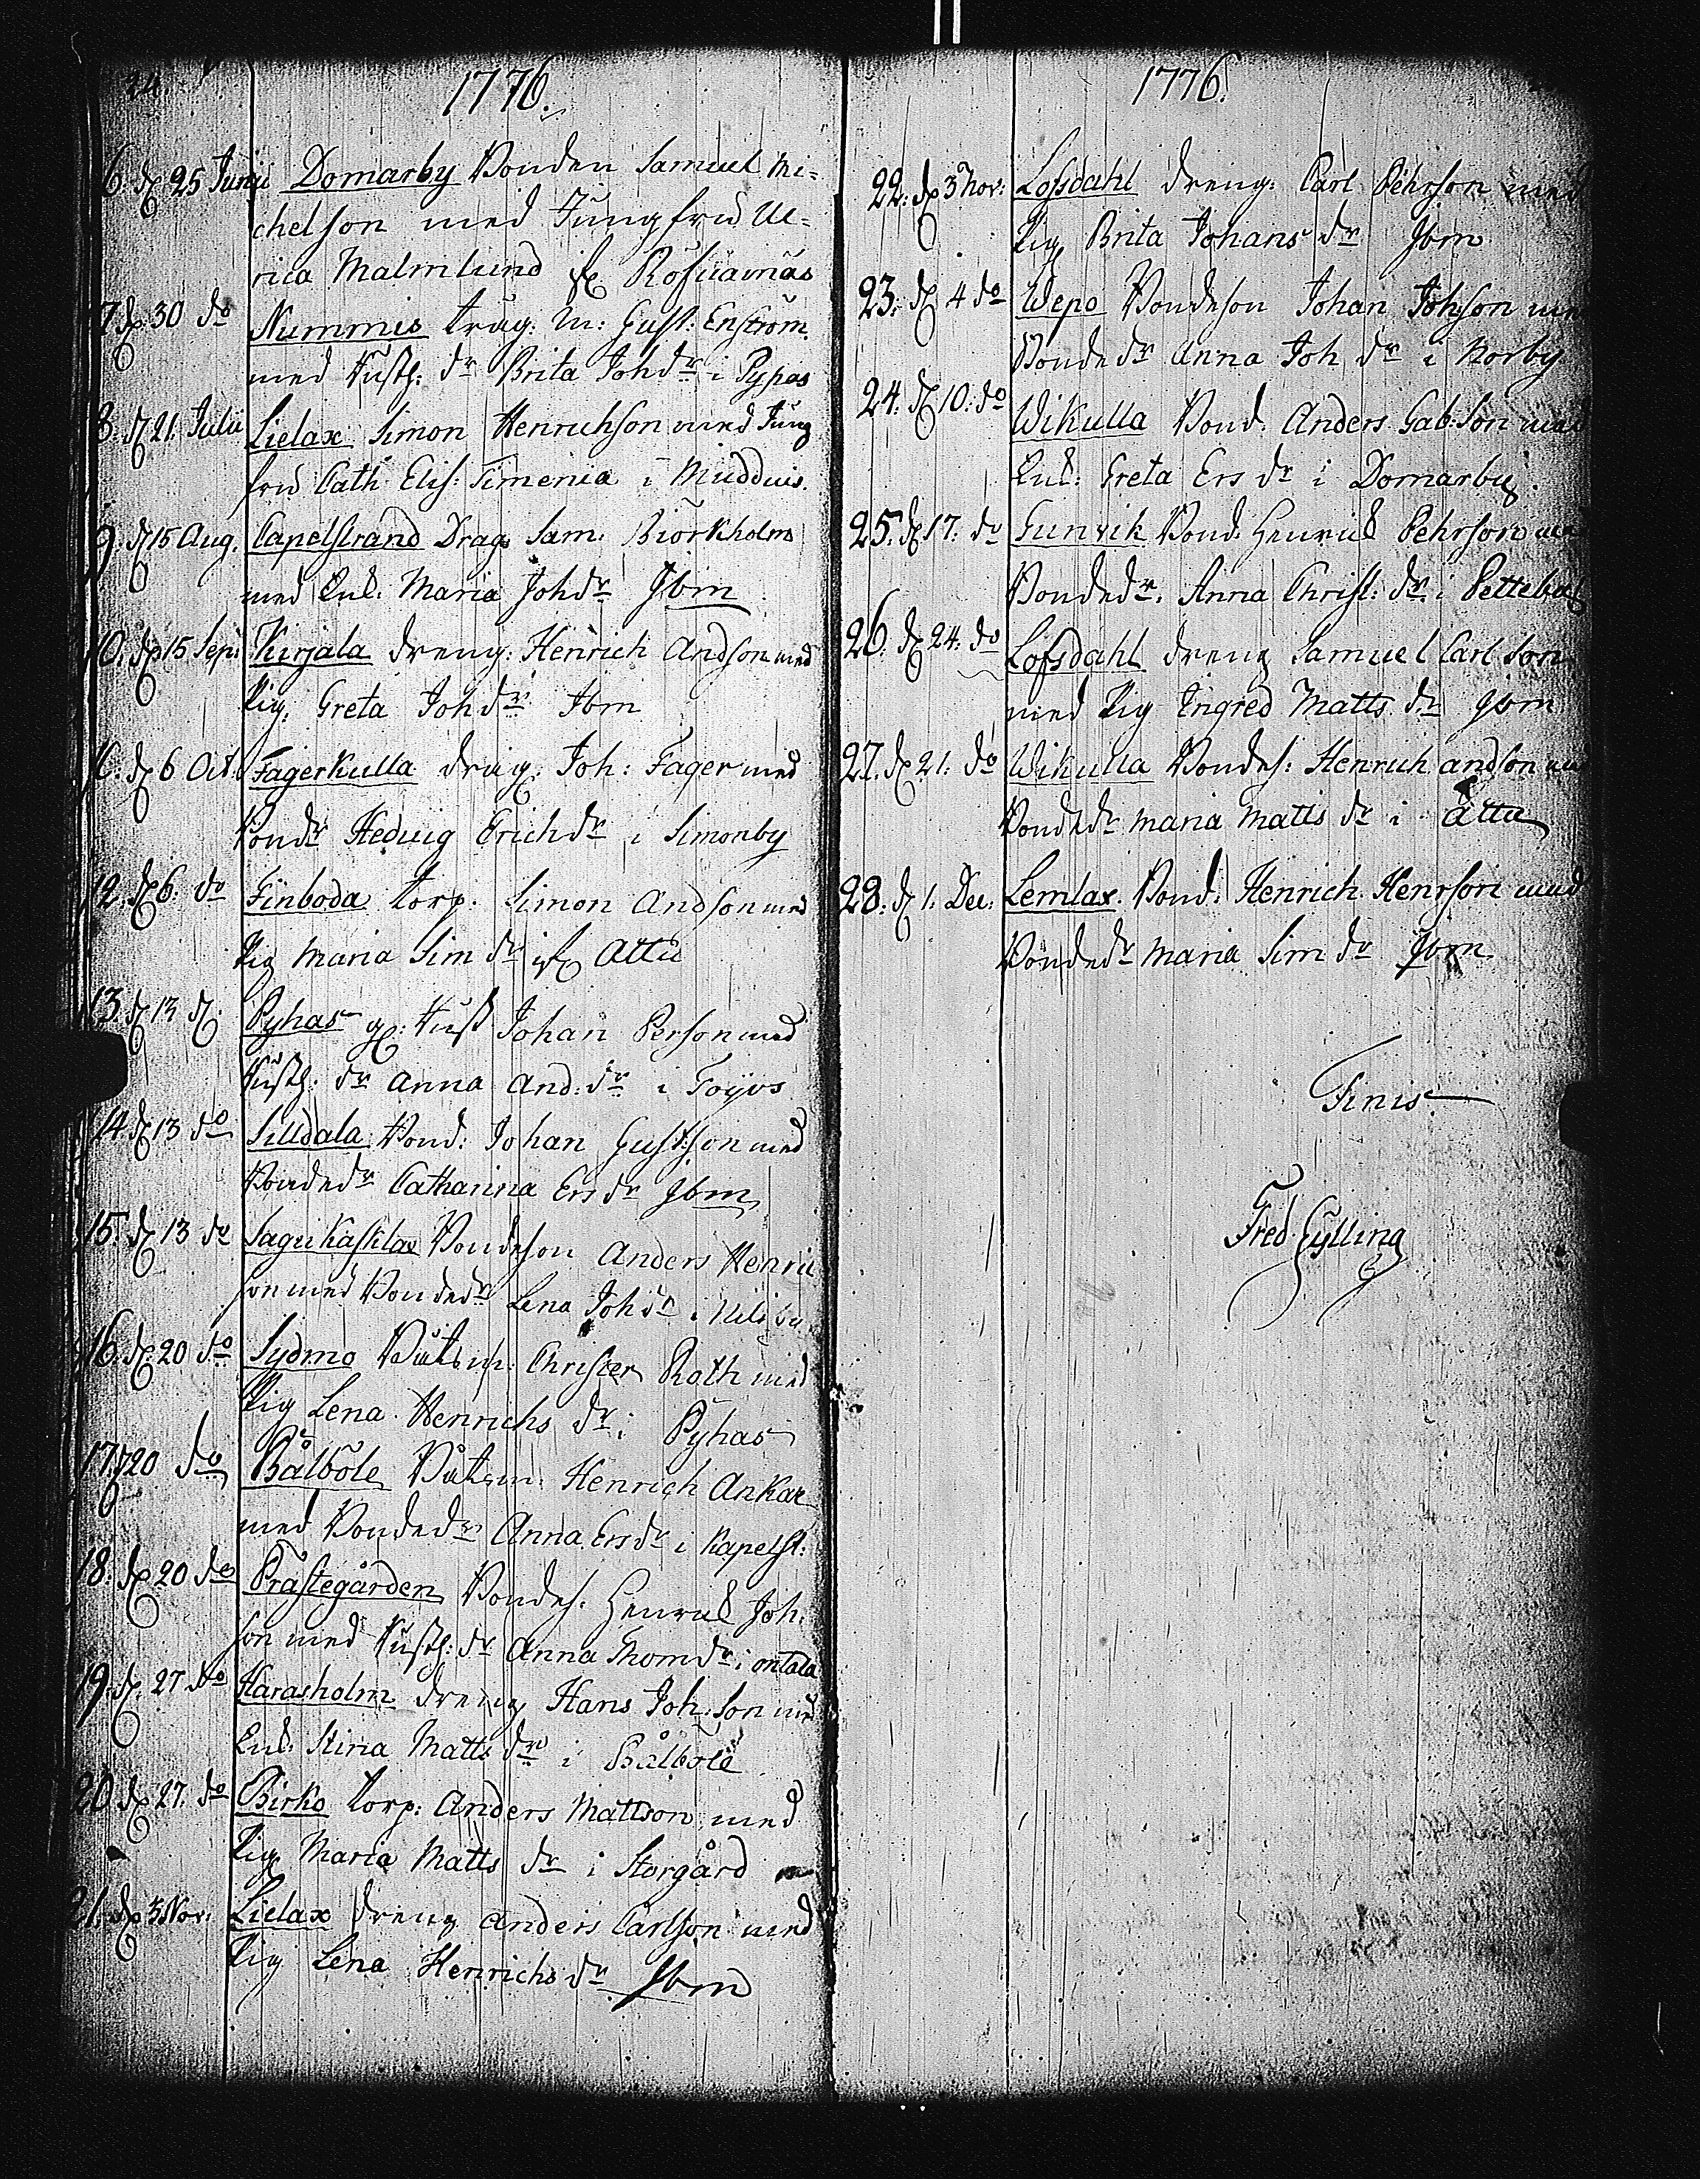 24
1776.
6. d. 25 Junii Domarby Bonden Samuel Mi=
chelson med Jungfru Ul=
rica Malmlund
7. d. 30 do Nummis Drag: M: Gust: Enström
med Rusth: dr Brita Johdr i Pyhas
8. d. 21. Julii Lielax Simon Henrichson med Jung
fru Cath: Elis: Simenia i Mudduis
9. d. 15 Aug. Capelstrand Drag Sam: Biörkholm
med Enk: Maria Johdr Ibm
10. d. 15 Sep: Kirjala dreng: Henrich Andson med
Pig. Greta Joh dr Ibm
d. 6 Oct. Fagerkulla drag: Joh: Fager med
Bondr Hedwig Erichdr i Simonby
12. d. 6. do Finboda torp. Simon Andson med
Pig Maria Sim dr Attu
13. d. 13 d. Pyhas Rusth Johan Person med
Rusth: dr Anna And: dr i
14. d. 13 do Silldala Bond: Johan Gustson med
Bondedr Catharina Ers dr Ibm
15. d 13 do Bondeson Anders Henric
son med Bondedr Lena Joh dr i
16. d. 20 do Sydmo Båtsm: Christer Roth med
Pig Lena Henrichs dr i Pyhas
17. 20 do Bålböle Båtsm: Henrich Ankar
med Bondedr Anna Ersdr i Kapelst:
18. d. 20 do Prästegården Bondes. Henrik Joh:
son med Rusth: dr Anna Thom dr i ontala
19. d. 27 do Harasholm dreng Hans Joh: Son med
Enk: Stina Matts dr i Bålböle
20 d. 27. do Birko torp: Anders Mattson med
Pig Maria Matts dr i Storgård
21. d. 3 Nov: Lielax dreng Anders Carlson med
Pig Lena Henrichs dr Ibm
1776.
22. d. 3 Nov: Lofsdahl dreng: Carl Pehrson med
Pig Brita Johans dr Ibm
23. d. 4 do Wepo Bondeson Johan Johson
Bondedr Anna Joh dr i Norby
24. d. 10. do Wikulla Bond: Anders Gab: Son med
Enk: Greta Ers dr i Domarby
25. d. 17. do Gunvik Bond: Henrik Pehrson
Bondedr. Anna Christ: dr: i
26. d. 24. do Lofsdahl dreng Samuel Carl Son
med Pig Ingred Matts dr Ibm
27. d. 21. do Wikulla Bondes: Henrich andson
Bondedr Maria Matts dr i Attu
28. d. 1. Dec: Lemlax. Bond: Henrich Henrson med
Bondedr Maria Sim dr Ibm
Finis
Fred. Gylling